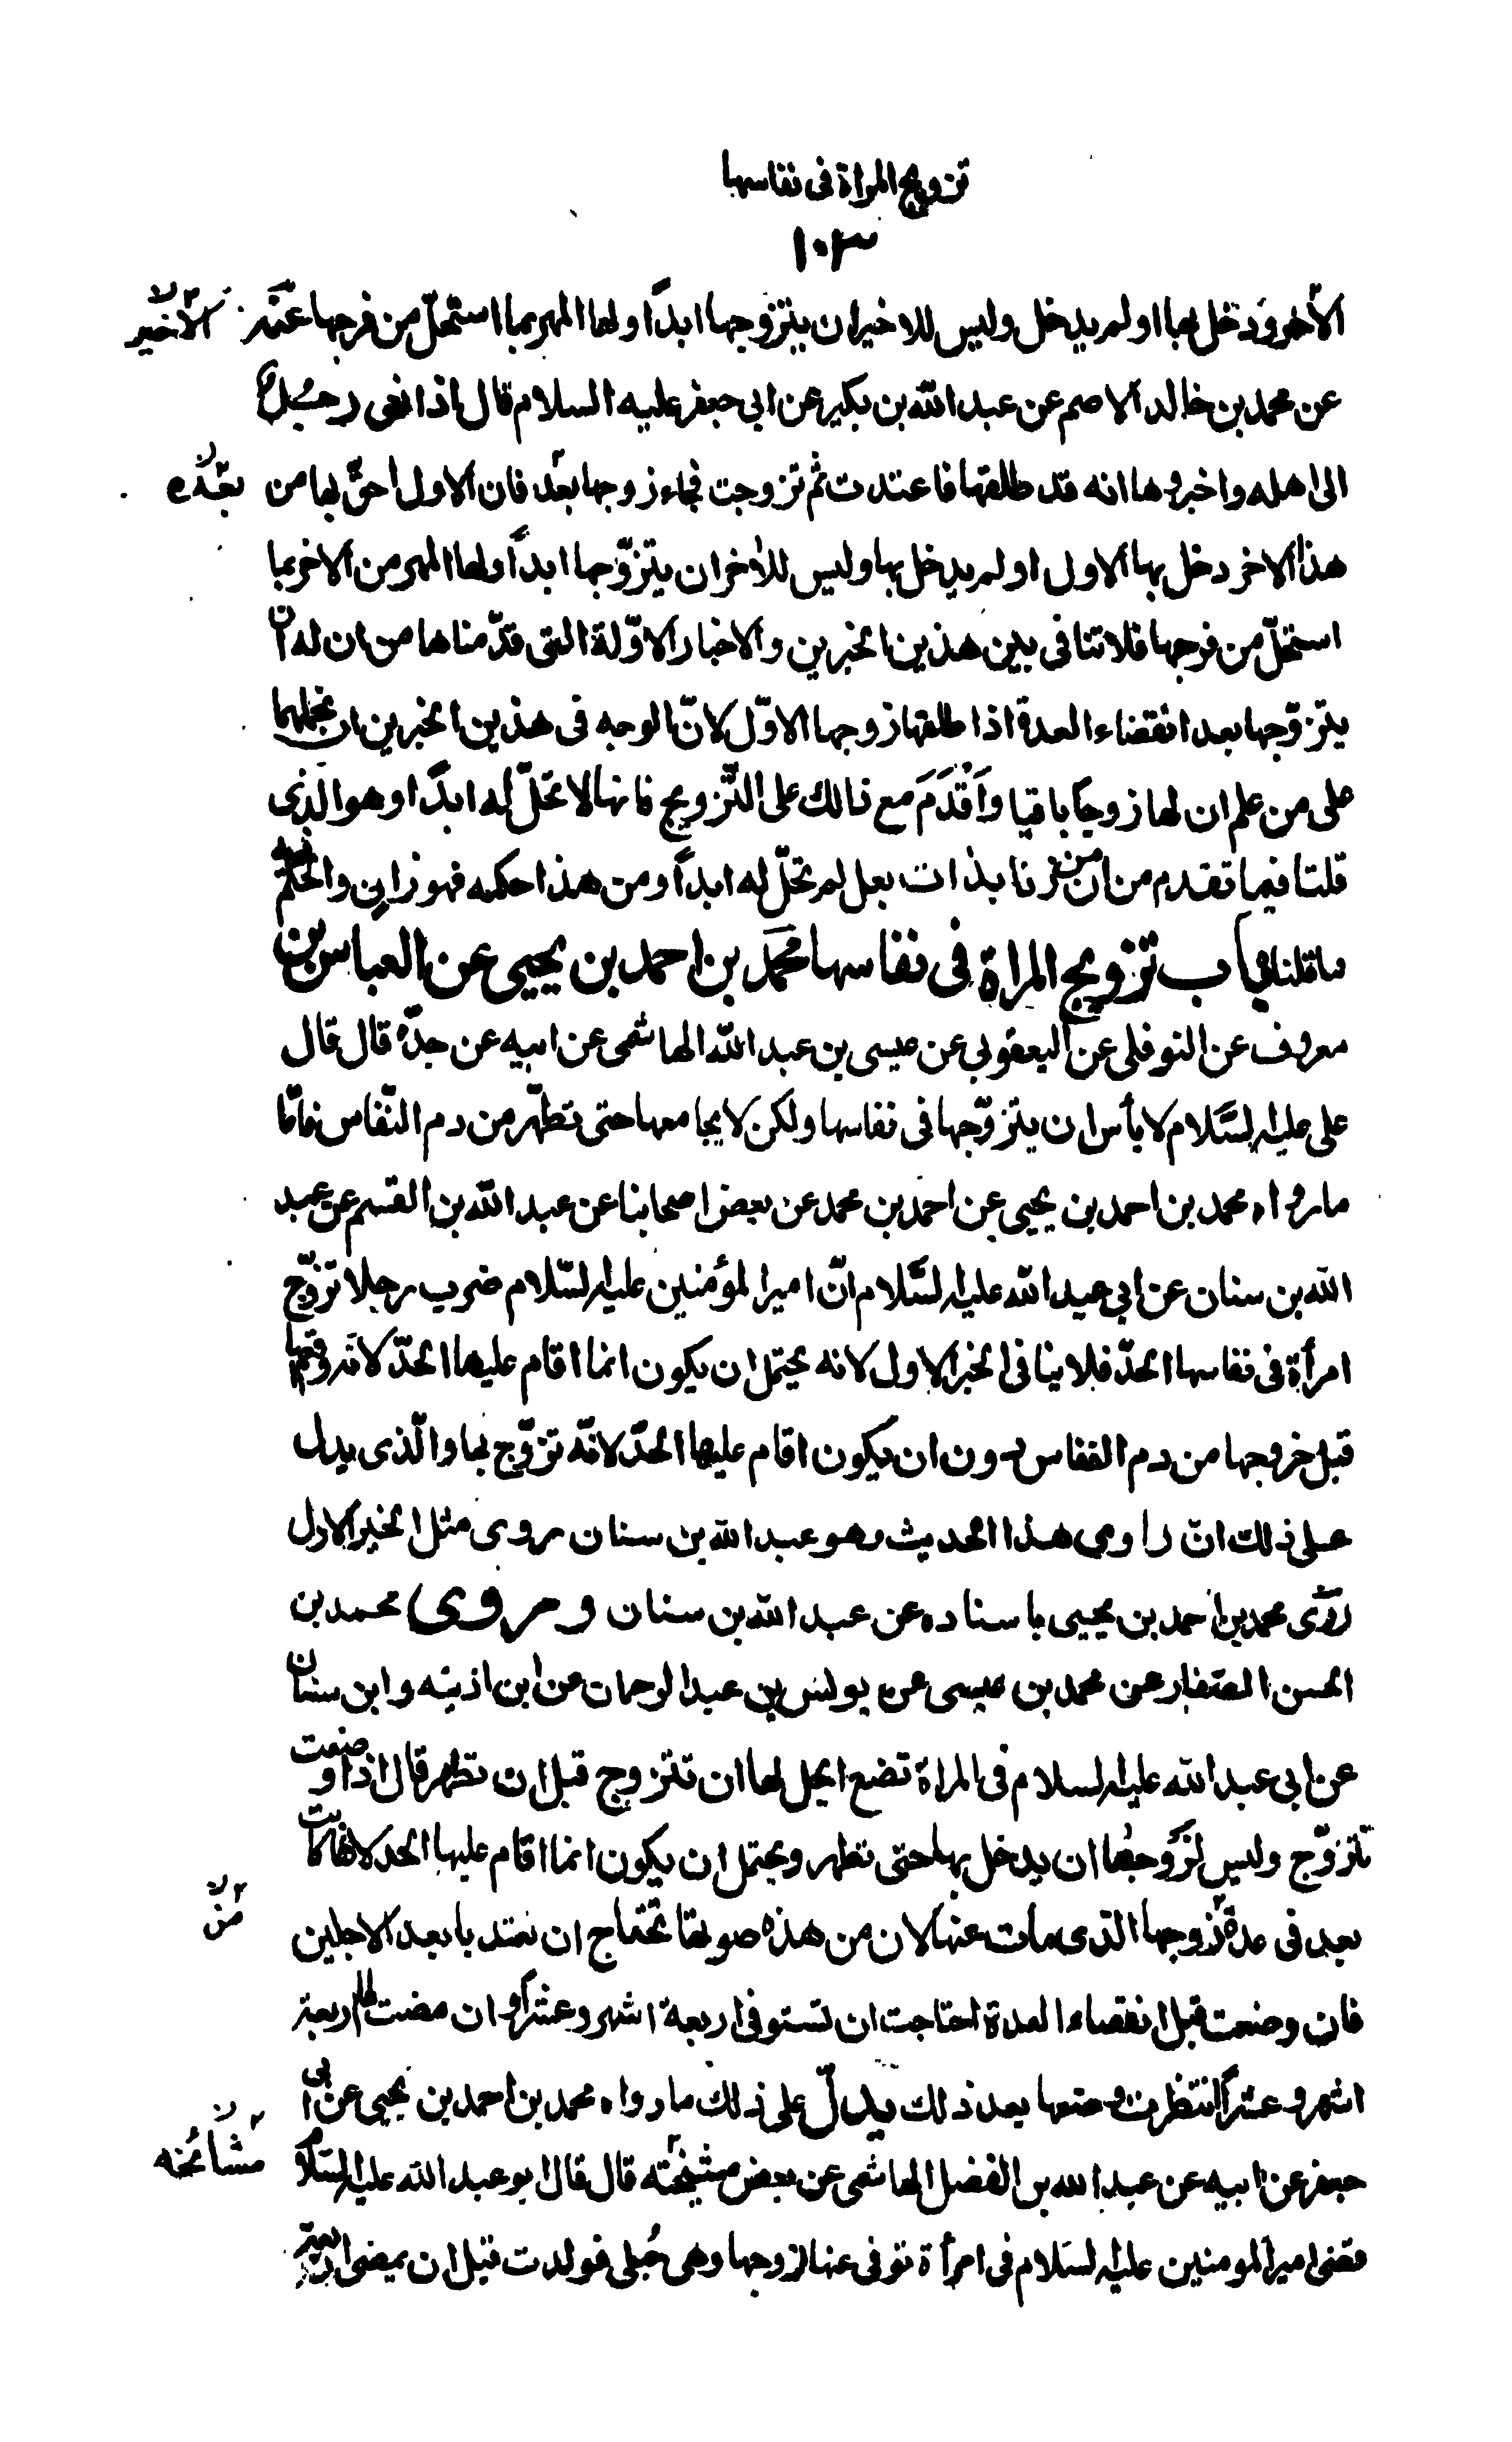 تزويج المراة فى نفاسها
١٠٣
الآخر ودخل بها اولم يدخل وليس للاخيران يتزوجها ابدًا ولها المهر بما استحلّ من فرجها عَنْه
الأخير
عن محمد بن خالد الاصم عن عبد الله بن بكير عن ابى جعفر عليه السلام قال اذا نعى رجلٌ
الى اهله واخبروها انه قد طلقها فاعتدت ثم تزوجت فجاء زوجها بعد فان الاول احقّ بها من
بعده
هذا الاخر دخل بها الاول او لم يدخل بها وليس للاخر ان يتزوّجها ابداً ولها المهر من الاخر بما
استحلّ من فرجها فلا تنافى بين هذين الخبرين والاخبار الاوّلة التى قدّمناها من ان له ان
يتزوّجها بعد انقضاء العدة اذا طلقها زوجها الاوّل لانّ الوجه فى هذين الخبرين ان نحملهما
على من علم ان لها زوجًا باقيا وَاَقْدَمَ مع ذالك على التّزويج فانها لا تحلّ له ابدًا وهو الذى
قلنا فيما تقدم من ان من زنا بذات بعل لم تحلّ له ابداً ومن هذا حكمه فهو زانٍ والحكم فيه
ما قلناه باب تزويج المراة فى نفاسها محمّد بن احمد بن يحيى عن العباس بن
معروف عن النوفلى عن اليعقوبى عن عيسى بن عبد الله الهاشمى عن ابيه عن جدّه قال قال
على عليه السَّلام لا بأس ان يتزوّجها فى نفاسها ولكن لا يجامعها حتى تطهّر من دم النّفاس فامّا
ما رواه محمد بن احمد بن يحيى عن احمد بن محمد عن بعض اصحابنا عن عبد الله بن القسم عن عبد
الله بن سنان عن ابى عبد الله عليه السَّلام انّ امير المؤمنين عليه السّلام ضرب رجلا تزوّج
امرأة فى نفاسها الحدّ فلا ينافى الخبر الاول لانه يحتمل ان يكون انما اقام عليها الحدّ لانه وقعها
قبل خروجها من دم النفاس دون ان يكون اقام عليها الحدّ لانّه تزوّج بها والّذى يدل
على ذلك انّ راوى هذا الحديث وهو عبد الله بن سنان روى مثل الخبر الاول
روَى محمد بن احمد بن يحيى باسناده عن عبد الله بن سنان وروى محمد بن
الحسن الصفار عن محمد بن عيسى عن يونس بن عبد الرحمان عن ابن اذينه وابن سنان
عن ابى عبد الله عليه السلام فى المراة تضع ايحل لها ان تتزوج قبل ان تطهر قال اذا وضعت
تزوّج وليس لزوجها ان يدخل بها حتى تطهر ويحتمل ان يكون انما اقام عليها الحد لانها كانت
بعد فى عدة زوجها الّذى مات عنها لان من هذه صورتها تحتاج ان تعتد بابعد الاجلين
من
فان وضعت قبل انقضاء العدة احتاجت ان تستوفى اربعة اشهر وعشرًا وان مضت لها اربعة
اشهر وعشرًا انتظرت وضعها بعد ذلك يدلّ على ذلك ما رواه محمد بن احمد بن يحيى عن ابى
جعفر عن ابيه عن عبد الله بن الفضل الهاشمى عن بعض مشيخته قال قال ابو عبد الله عليه السّلام
مشائخه
قضى امير المومنين عليه السَلام فى امرأة توفى عنها زوجها وهى حُبلى فولدت قبل ان يمضى اربعة